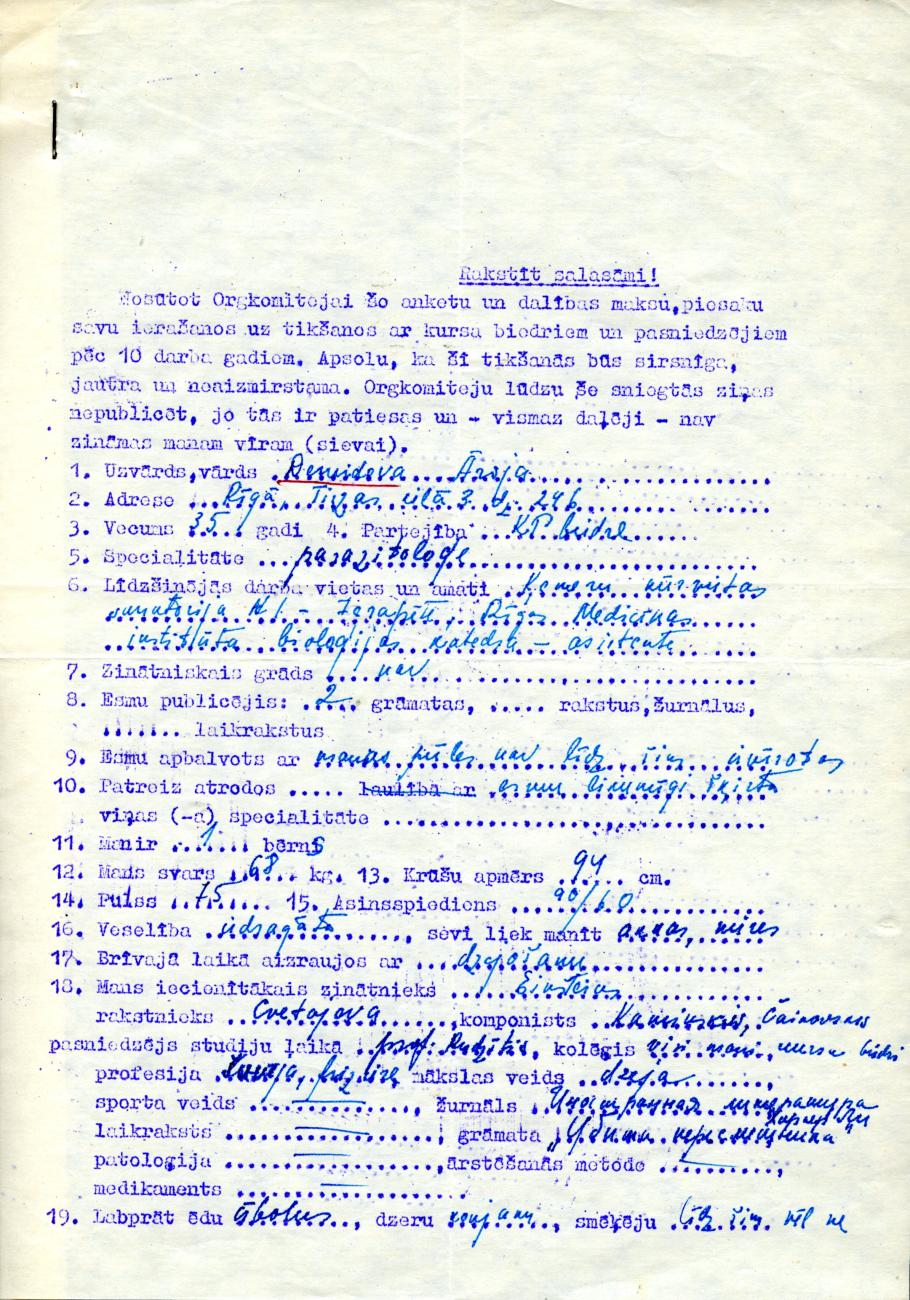 Rakstīt salasāmi!
Nosūtot Orgkomitejai šo anketu un dalības maksu, piesaku
savu ierašanos uz tikšanos ar kursa biedriem un pasniedzējiem
pēc 10 darba gadiem. Apsolu, ka šī tikšanās būs sirsnīga,
jautra un neaizmirstama. Orgkomiteju lūdzu še sniegtās ziņas
nepublicēt, jo tās ir patiesas un - vismaz daļēji - nav
zināmas manam vīram (sievai).
1. Uzvārds, vārds Demidova Ārija
2. Adrese Rīgā, ielā 3 dz. 246
3. Vecums 35 gadi 4. Partejība KP biedre
5. Specialitāte parazitologe
6. Līdzšinējās darba vietas un amati Ķemeru kūrvietas
sanatorija N 1 - terapeite, Rīgas Medicīnas
institūta bioloģijas katedra - asistente
7. Zinātniskais grāds nav
8. Esmu publicējis: 2 grāmatas, ..... rakstus, žurnālus,
....... laikrakstus
9. Esmu apbalvots ar manas pūles nav līdz šim novērotas
10. Patreiz atrodos ..... laulībā ar esmu laimīgi šķirta
viņas (-a) specialitāte
11. Man ir 1 bērns
12. Mans svars 68 kg. 13. Krūšu apmērs 94 cm.
14. Pulss 75 15. Asinsspiediens 90/60
16. Veselība, sevi liek manīt
17. Brīvajā laikā aizraujos ar dzejošanu
18. Mans iecienītākais zinātnieks Einšteins
rakstnieks Cvetajeva, komponists Čaikovskis
pasniedzējs studiju laikā prof., kolēģis visi mani kursa biedri
profesija friziere mākslas veids dzeja,
sporta veids —, žurnāls Иностранная литература
laikraksts —, grāmata
patoloģija —, ārstēšanas metode —,
medikaments —
19. Labprāt ēdu ābolus, dzeru, smēķēju līdz šim vēl ne